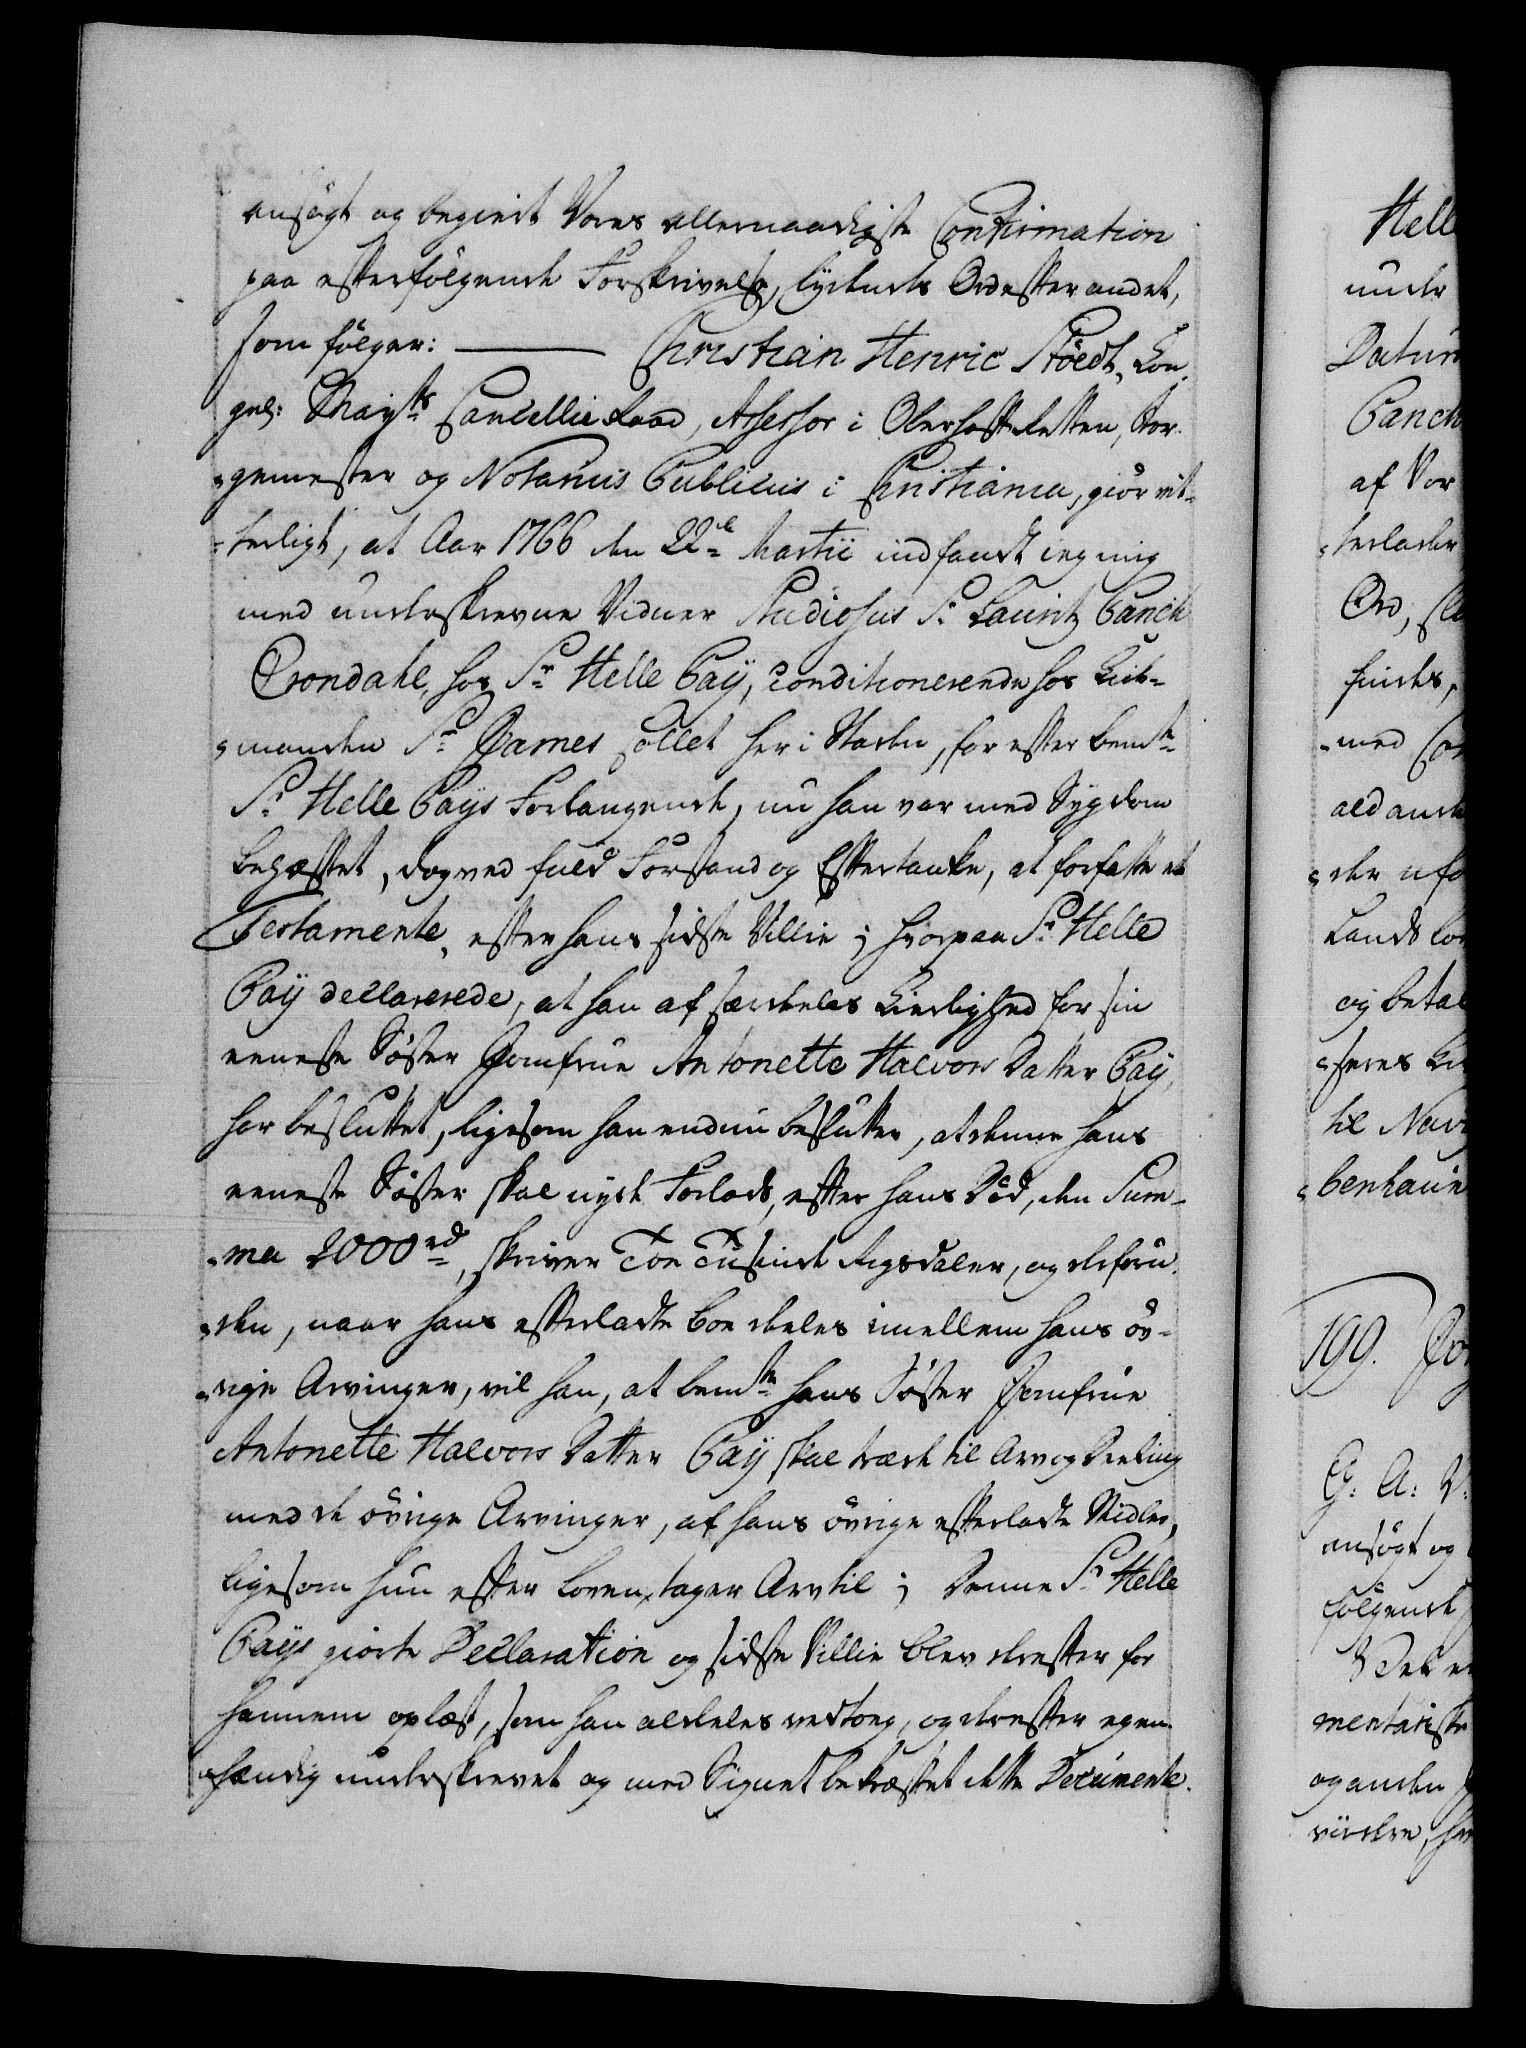 ansøgt og begiert Vores allernaadigste Confirmation
paa efterfølgende Forskrivelse, lydende Ord efter andet,
som følger: ——— Christian Henric Stöedt, Kon¬
gel: Mayts Cancellie Raad, Assessor i Oberhoff Retten, Bor¬
gemester og Notarius Publicus i Christiania, giør vit¬
terligt, at Aar 1766 den 22de Martii indfandt ieg mig
med underskrevne Vidner Studiosus Sr. Lauritz Panck
Trondahl, hos Sr. Helle Paÿ, conditionerende hos Kiøb¬
manden Sr. James Collet her i Staden, for efter bemte
Sr. Helle Paÿs Forlangende, nu han var med Sygdom
behæftet, dog ved fuld Forstand og Eftertanke, at forfatte et
Testamente, efter hans sidste Villie; hvorpaa Sr. Helle
Paÿ declarerede, at han af særdeles Kierlighed for sin
eeneste Søster Jomfrue Antonette Halvors Datter Paÿ,
har besluttet, ligesom han endnu beslutter, at denne hans
eeneste Søster skal nyde Forlods, efter hans Død, den Sum¬
ma 2000 rd, skriver Toe Tusinde Rigsdaler, og desfor¬u
den, naar hans efterladte Boe deeles imellem hans øv¬
rige Arvinger, vil han, at bemte hans Søster Jomfrue
Antonette Halvors Datter Paÿ skal træde til Arv og Deeling
med de øvrige Arvinger, af hans øvrige efterladte Midler,
ligesom hun efter Loven tager Arv til; Denne Sr. Helle
Paÿs giorte Declaration og sidste Villie blev derefter for
hannem oplæst, som han aldeles vedtoeg, og derefter egen¬
hændig underskrevet og med Signet bekræftet dette Document.
Helle
under
Datum
Panck
af Vor
terladte
Ord,
findes,
med
ald anden
Lands Lov
og betal
til Nav
benhavn
199.
G: A: V:
ansøgt og
følgende
mentariske
og anden